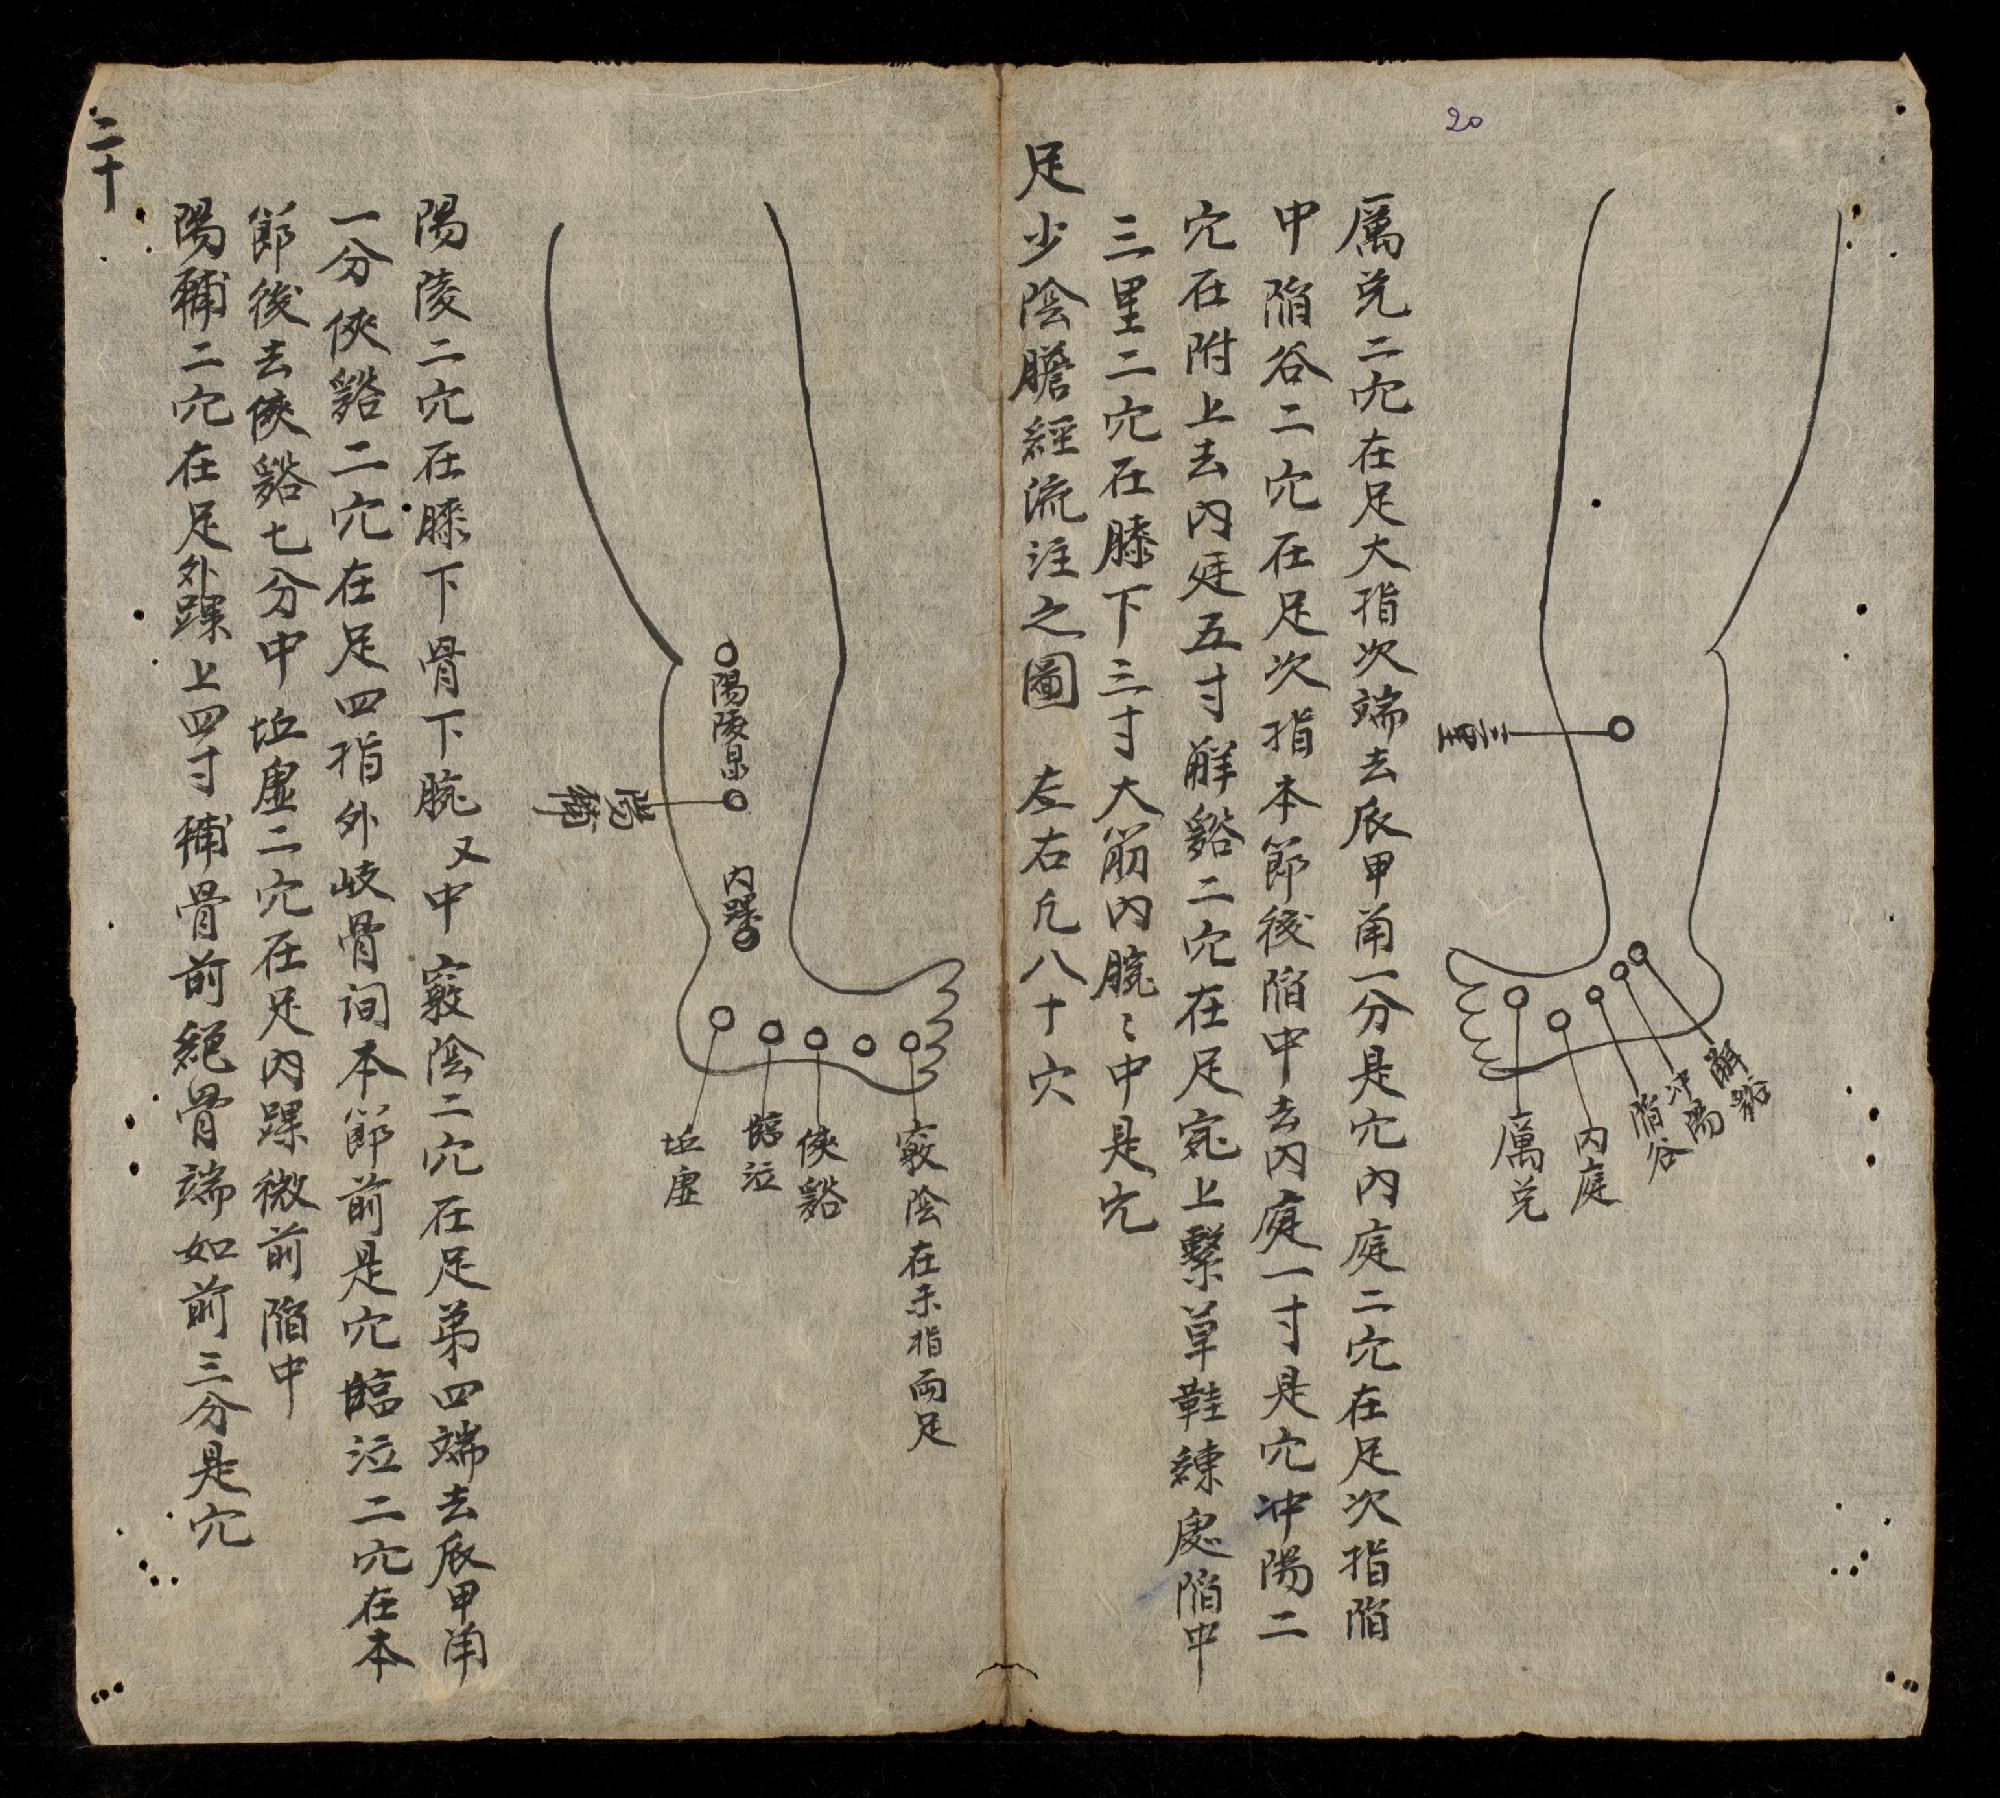 20
三里
解谿
冲陽
陷谷
內庭
厲兌
厲兌二穴在足大指次端去爪甲角一分是穴內庭二穴在足次指陷
中陷谷二穴在足次指本節後陷中去內庭一寸是穴冲陽二
穴在附上去內廷五寸解谿二穴在足腕上繫草鞋練處陷中
三里二穴在膝下三寸大筋內腕〻中是穴
足少陰膽經流注之圖 左右凡八十穴
陽陵泉
陽輔
內踝
竅陰在未指両足
俠谿
臨泣
坵虛
陽陵二穴在膝下骨下腕又中 竅陰二穴在足第四端去爪甲角
一分俠谿二穴在足四指外岐骨间本節前是穴臨泣二穴在本
節後去俠谿七分中坵虛二穴在足內踝微前陷中
陽輔二穴在足外踝上四寸補骨前絕骨端如前三分是穴
二十